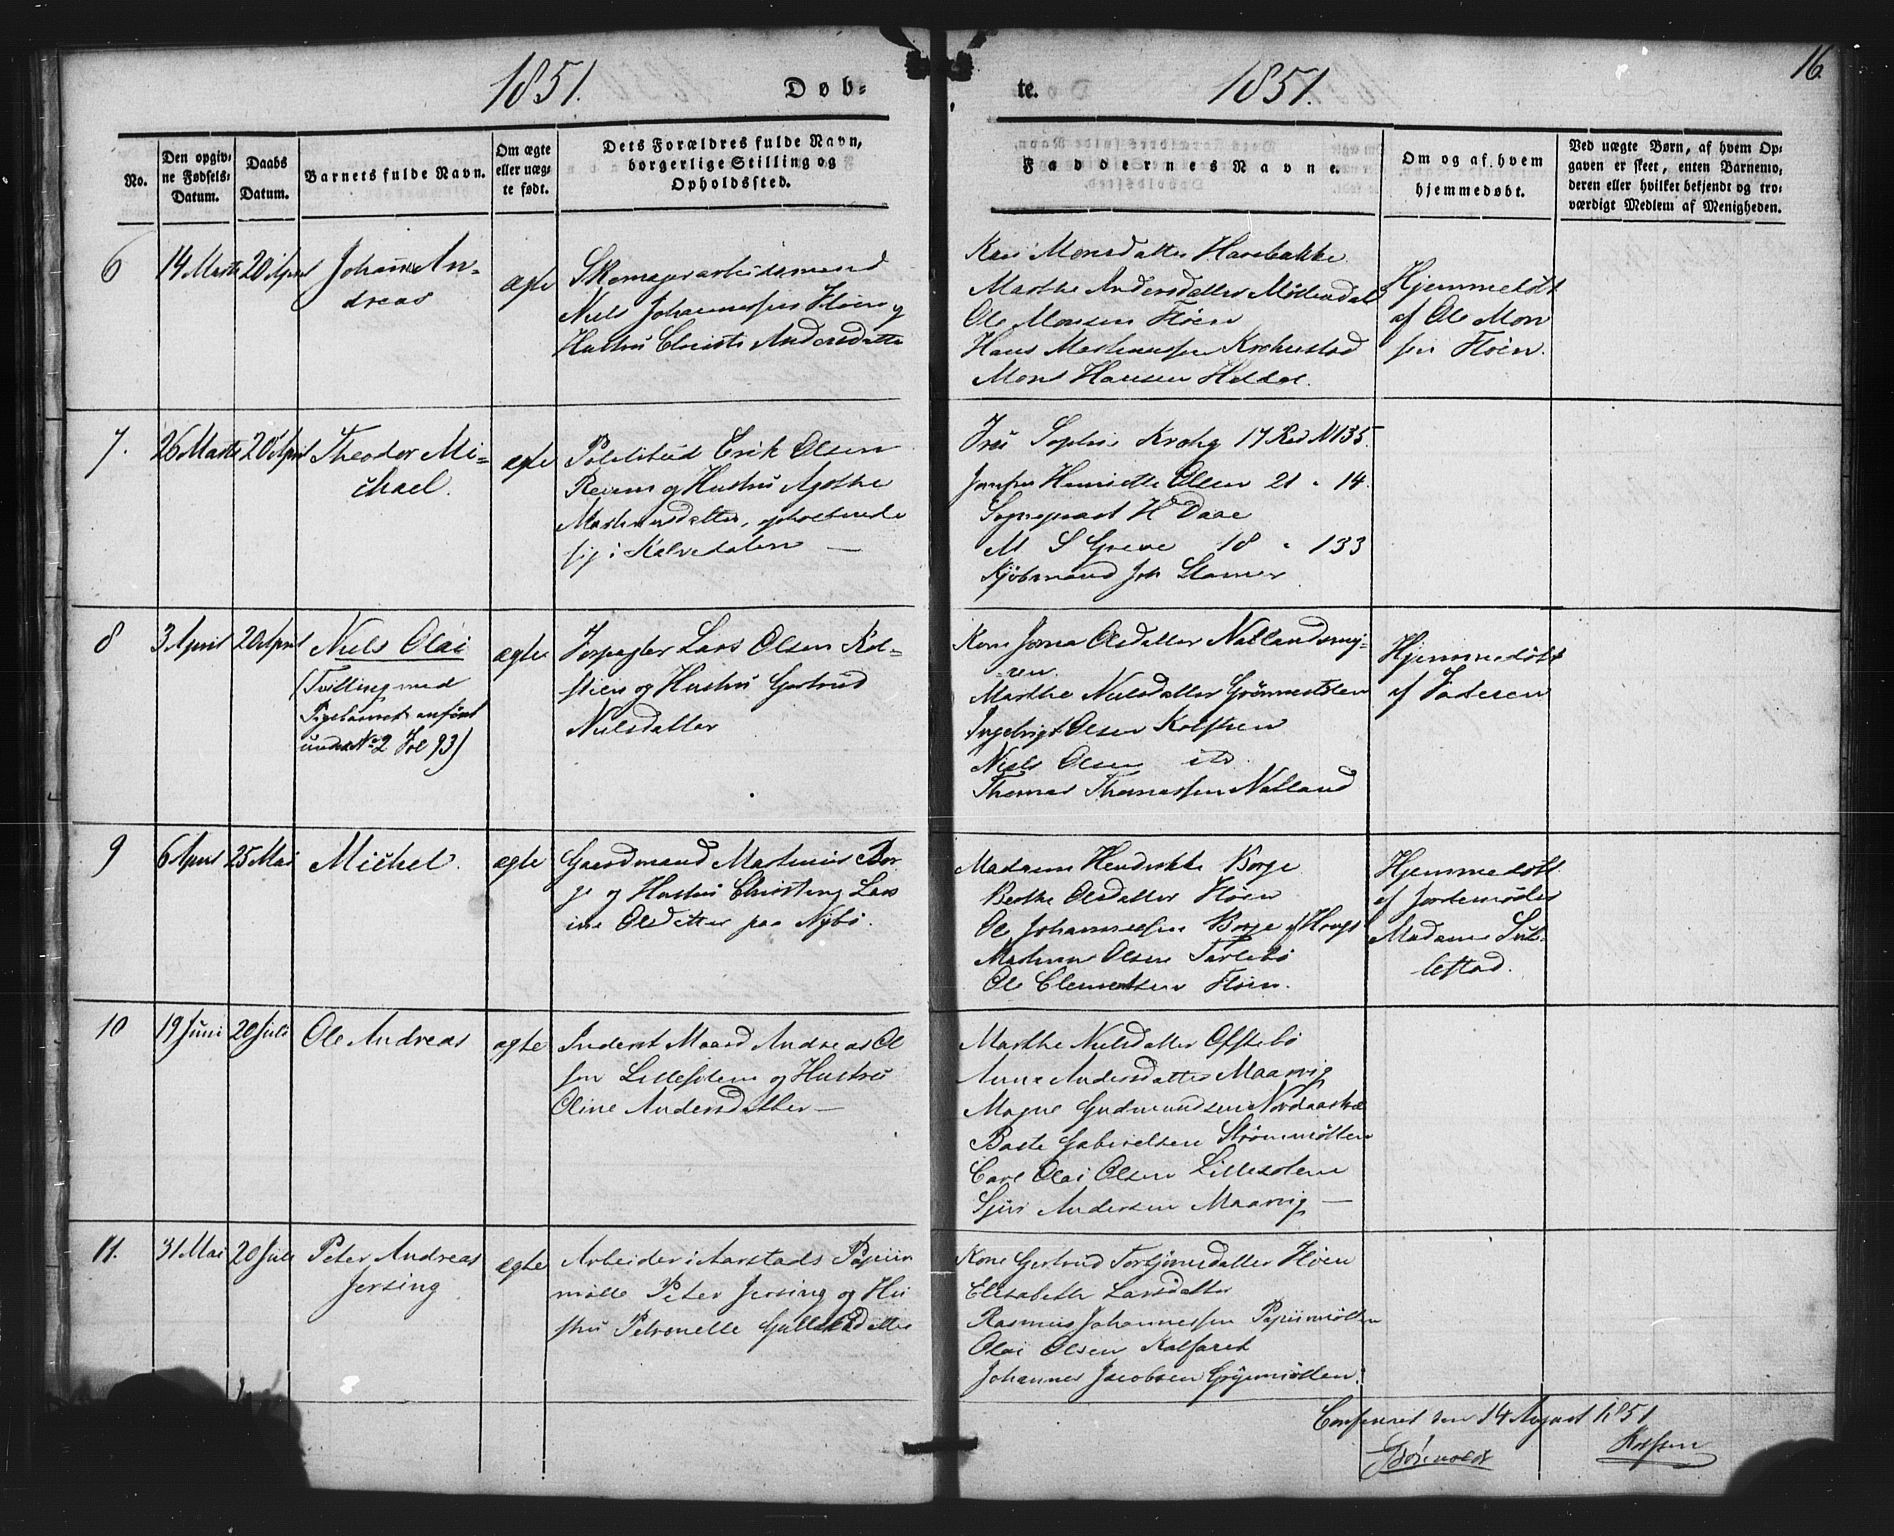 1851.
Døb-
te.
1851.
16
No.
Den opgiv-
ne Fødsels-
Datum.
Daabs
Datum.
Barnets fulde Navn.
Om ægte
eller uæg-
te født.
Dets Forældres fulde Navn,
borgerlige Stilling og
Opholdssted.
Faddernes Navne.
Om og af hvem
hjemmedøbt.
Ved uægte Børn, af hvem Op-
gaven er skeet, enten Barnemo-
deren eller hvilket bekjendt og tro-
værdigt Medlem af Menigheden.
6
14 Marts
20 April
Johan An-
dreas
ægte
Skomagerarbeidsmand
Niels Johannessen Fløen og
Hustru Christi Andersdatter
Kari Monsdatter Harebakke
Marthe Andersdatter Møllendal
Ole Monsen Fløen
Hans Martinussen Krohnstad
Mons Hansen Heldal.
Hjemmedøbt
af Ole Mon
sen Fløen.
7.
26 Marts
20 April
Theodor Mi-
chael.
ægte
Politibud Erik Olsen
Revem og Hustru Agathe
Martinusdatter, opholdende
sig i Kalvedalen —
Fru Sophie Krohg 17 Rod N 135
Jomfru Henriette Olsen 21 " 14.
Sogneprest H Daae
M S Greve 18 " 133
Kjøbmand Joh Stamer
8
3 April
20 April
Niels Olai
(Tvilling med
Pigebarnet anført
under No 2 Fol 93)
ægte
Forpagter Lars Olsen Kol-
stien og Hustru Gertrud
Nielsdatter
Kone Jorna Olsdatter Natlandsmy-
ren.
Marthe Nielsdatter Grønnestølen
Ingebrigt Olsen Kolstien
Niels Olsen ito
Thomas Thomassen Natland
Hjemmedøbt
af Faderen
9
6 April
25 Mai
Michel.
ægte
Gaardmand Martinus Bor
ge og Hustru Christine Lars
ine Olsdatter paa Nybø.
Madam Hendrikke Borge
Berthe Olsdatter Fløen
Ole Johannessen Borge af Haugs
Martinus Olsen Tarlebø
Ole Clementsen Fløen.
Hjemmedøbt
af Jordemoder
Madame
10
19 Juni
20 Juli
Ole Andreas
ægte
Inderst Maard Andreas Ol
sen Lillesolem og Hustru
Oline Andersdatter —
Marthe Nielsdatter Oftebø
Anne Andersdatter Maarvig
Magne Gudmundsen Nordaastræ
Baste Gabrielsen Strømmøllen
Carl Olai Olsen Lillesolem
Sjur Andersen Maarvig —
11.
31 Mai
20 Juli
Peter Andreas
Jersing
ægte
Arbeider i Aarstads Papiir
mølle Peter Jersing og Hu
stru Petronelle Gullaksdatter
Kone Gertrud Torbjørnsdatter Fløen
Elisabeth Larsdatter
Rasmus Johannessen Papiirmøllen
Olai Olsen Kalfaret
Johannes Jacobsen Grynmøllen.
Confereret den 14 August 1851